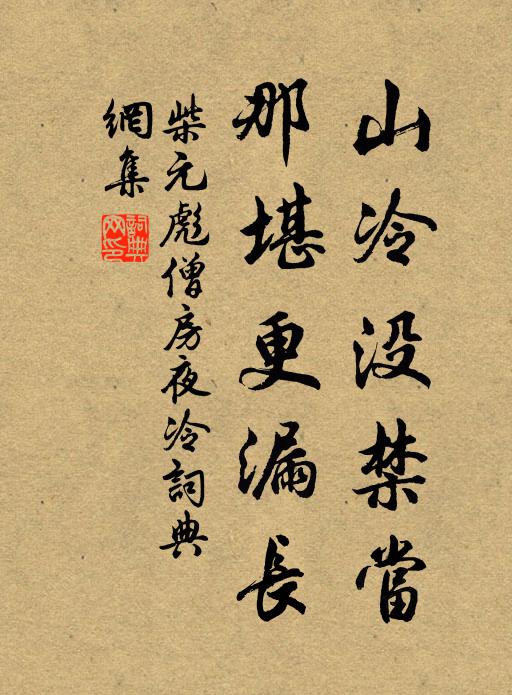 山冷没禁當
那堪更漏長
柴元彪僧房夜冷詞典
網集
詞典
網印